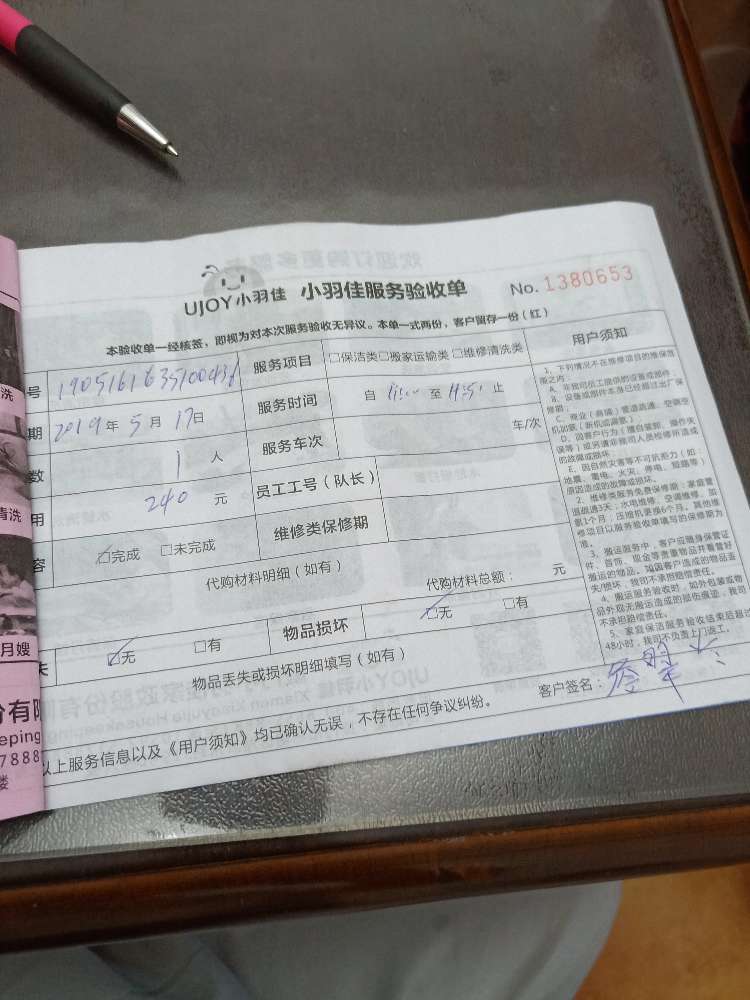 UJOY小羽佳 小羽佳服务验收单 No. 1380653
本验收单一经核签，即视为对本次服务验收无异议。本单一式两份，客户留存一份（红）
号 服务项目 □保洁类□搬家运输类□维修清洗类 用户须知
期 2019年5月17日 服务时间 自 至 止
数 1人 服务车次 车/次
用 240元 员工工号（队长）
容 ☑完成 □未完成 维修类保修期
代购材料明细（如有） 代购材料总额： 元
失 ☑无 □有 物品损坏 ☑无 □有
物品丢失或损坏明细填写（如有）
以上服务信息以及《用户须知》均已确认无误，不存在任何争议纠纷。 客户签名：
1、下列情况不在维修项目的维保范
围之内：
A、非我司员工提供的设备或部件；
B、设备或部件本身已经超过出厂保
修期；
C、商业（商铺）管道疏通、空调空
机加氟（新机或漏氟）；
D、因客户行为（擅自装卸、操作失
误等）或另请非我司人员检修所造成
的故障或损坏；
E、因自然灾害等不可抗拒力（如：
地震、雷电、火灾、停电、短路等）
原因造成的故障或损坏。
2、维修类服务免费保修期：家庭管
道疏通3天；水电维修、空调维修、加
氟1个月；压缩机更换6个月。其他维
修项目以服务验收单填写的保修期为
准。
3、搬运服务中，客户应随身保管证
件、首饰、现金等贵重物品并看管好
搬运的物品。如因客户造成的物品丢
失/损坏，我司不承担赔偿责任。
4、搬运服务验收时，如外包装或物
品外观无搬运造成的损伤痕迹，我司
不承担赔偿责任。
5、家庭保洁服务验收结束后超过
48小时，我司不负责上门返工。
洗
清洗
月嫂
份有限
eping
7888
楼